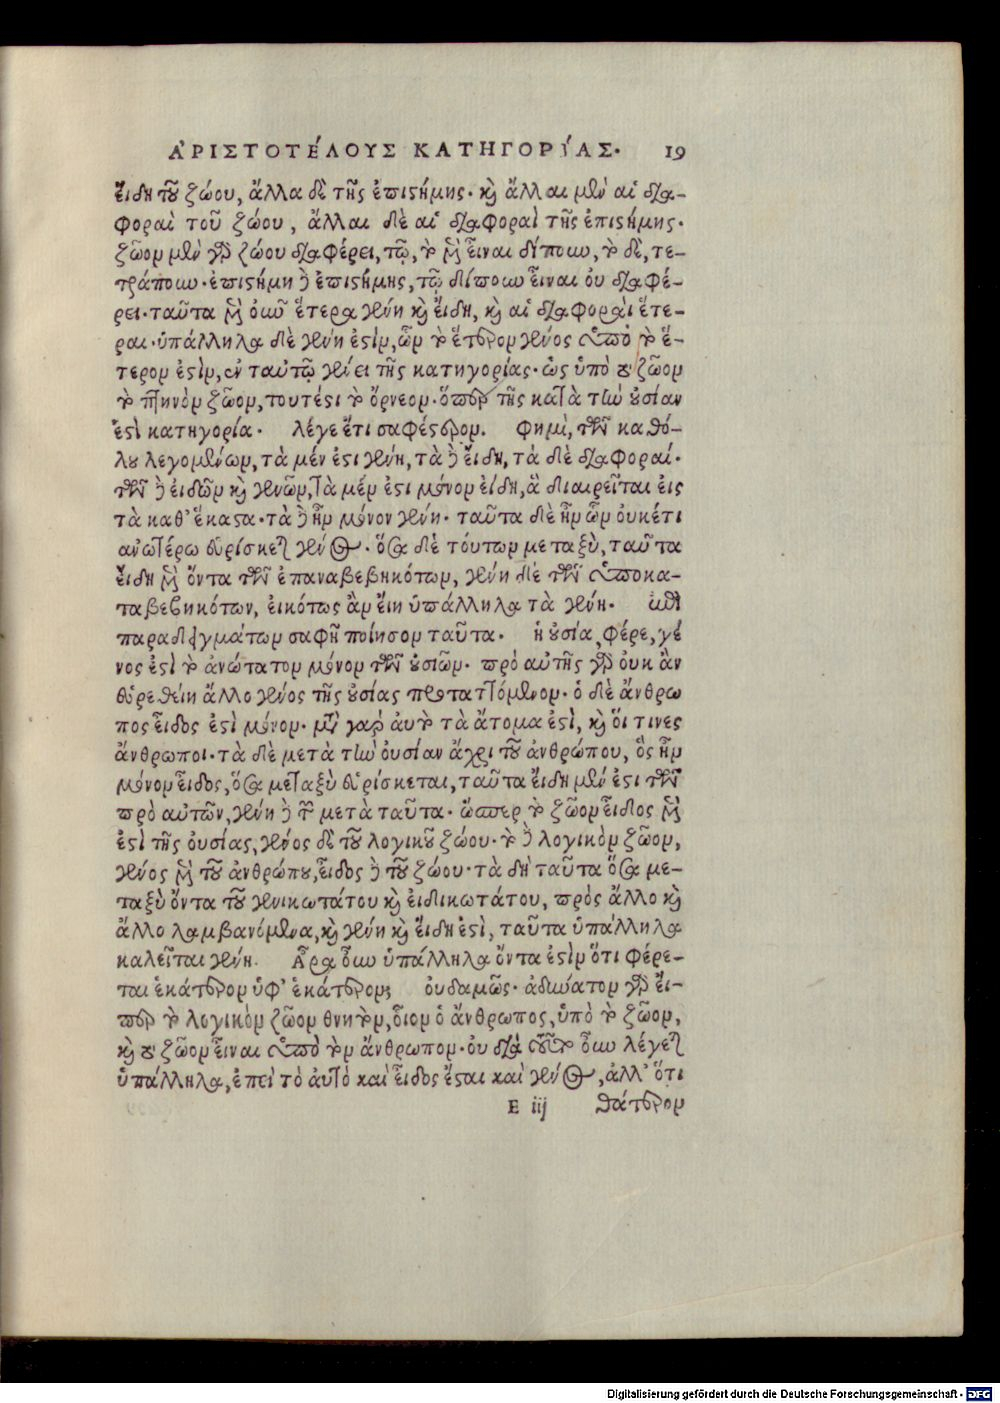 ἈΡΙΣΤΟΤΈΛΟΥΣ ΚΑΤΗΓΟΡΊΑΣ. 19
εἴδη τοῦ ζώου, ἄλλα δὲ τῆς ἐπιστήμης· καὶ ἄλλαι μὲν αἱ δια-
φοραὶ τοῦ ζώου, ἄλλαι δὲ αἱ διαφοραὶ τῆς ἐπιστήμης·
ζῶον μὲν γὰρ ζώου διαφέρει, τῷ, τὸ μὲν εἶναι δίπουν, τὸ δὲ, τε-
τράπουν· ἐπιστήμη δὲ ἐπιστήμης, τῷ δίπουν εἶναι οὐ διαφέ-
ρει· ταῦτα μὲν οὖν ἕτερα γένη καὶ εἴδη, καὶ αἱ διαφοραὶ ἕτε-
ραι· ὑπάλληλα δὲ γένη ἐστὶν, ὧν τὸ ἕτερον γένος ὑπὸ τὸ ἕ-
τερον ἐστὶν, ἐν ταὐτῷ γένει τῆς κατηγορίας· ὡς ὑπὸ τὸ ζῶον
τὸ πτηνὸν ζῶον, τουτέστι τὸ ὄρνεον· ὅπερ τῆς κατὰ τὴν οὐσίαν
ἐστὶ κατηγορία· λέγε ἔτι σαφέστερον. Φημὶ, τῶν καθό-
λου λεγομένων, τὰ μέν ἐστι γένη, τὰ δὲ εἴδη, τὰ δὲ διαφοραί·
τῶν δὲ εἰδῶν καὶ γενῶν, τὰ μέν ἐστι μόνον εἴδη, ἃ διαιρεῖται εἰς
τὰ καθ' ἕκαστα· τὰ δὲ ἦν μόνον γένη· ταῦτα δὲ ἦν ὧν οὐκέτι
ἀνωτέρω εὑρίσκεται γένος· ὅσα δὲ τούτων μεταξὺ, ταῦτα
εἴδη μὲν ὄντα τῶν ἐπαναβεβηκότων, γένη δὲ τῶν ὑποκα-
ταβεβηκότων, εἰκότως ἂν εἴη ὑπάλληλα τὰ γένη· ἐπὶ
παραδειγμάτων σαφῆ ποίησον ταῦτα· ἡ οὐσία, φέρε, γέ
νος ἐστὶ τὸ ἀνώτατον μόνον τῶν οὐσιῶν· πρὸ αὐτῆς γὰρ οὐκ ἂν
εὑρεθείη ἄλλο γένος τῆς οὐσίας προταττόμενον· ὁ δὲ ἄνθρω
πος εἶδος ἐστὶ μόνον· μετὰ γὰρ αὐτὸ τὰ ἄτομα ἐστὶ, καὶ οἵ τινες
ἄνθρωποι· τὰ δὲ μετὰ τὴν οὐσίαν ἄχρι τοῦ ἀνθρώπου, ὃς ἦν
μόνον εἶδος, ὅσα μεταξὺ εὑρίσκεται, ταῦτα εἴδη μέν ἐστι τῶν
πρὸ αὐτῶν, γένη δὲ τῶν μετὰ ταῦτα· ὥσπερ τὸ ζῶον εἶδος μὲν
ἐστὶ τῆς οὐσίας, γένος δὲ τοῦ λογικοῦ ζώου· τὸ δὲ λογικὸν ζῶον,
γένος μὲν τοῦ ἀνθρώπου, εἶδος δὲ τοῦ ζώου· τὰ δὴ ταῦτα ὅσα με-
ταξὺ ὄντα τοῦ γενικωτάτου καὶ εἰδικωτάτου, πρὸς ἄλλο καὶ
ἄλλο λαμβανόμενα, καὶ γένη καὶ εἴδη ἐστὶ, ταῦτα ὑπάλληλα
καλεῖται γένη. Ἆρα οὖν ὑπάλληλα ὄντα ἐστὶν ὅτι φέρε-
ται ἑκάτερον ὑφ' ἑκάτερον; οὐδαμῶς· ἀδύνατον γὰρ εἴ-
περ τὸ λογικὸν ζῶον θνητὸν, οἷον ὁ ἄνθρωπος, ὑπὸ τὸ ζῶον,
καὶ τὸ ζῶον εἶναι ὑπὸ τὸν ἄνθρωπον· οὐ διὰ τοῦτο οὖν λέγεται
ὑπάλληλα, ἐπεὶ τὸ αὐτὸ καὶ εἶδος ἔσται καὶ γένος, ἀλλ' ὅτι
E iij θάτερον
Digitalisierung gefördert durch die Deutsche Forschungsgemeinschaft - DFG